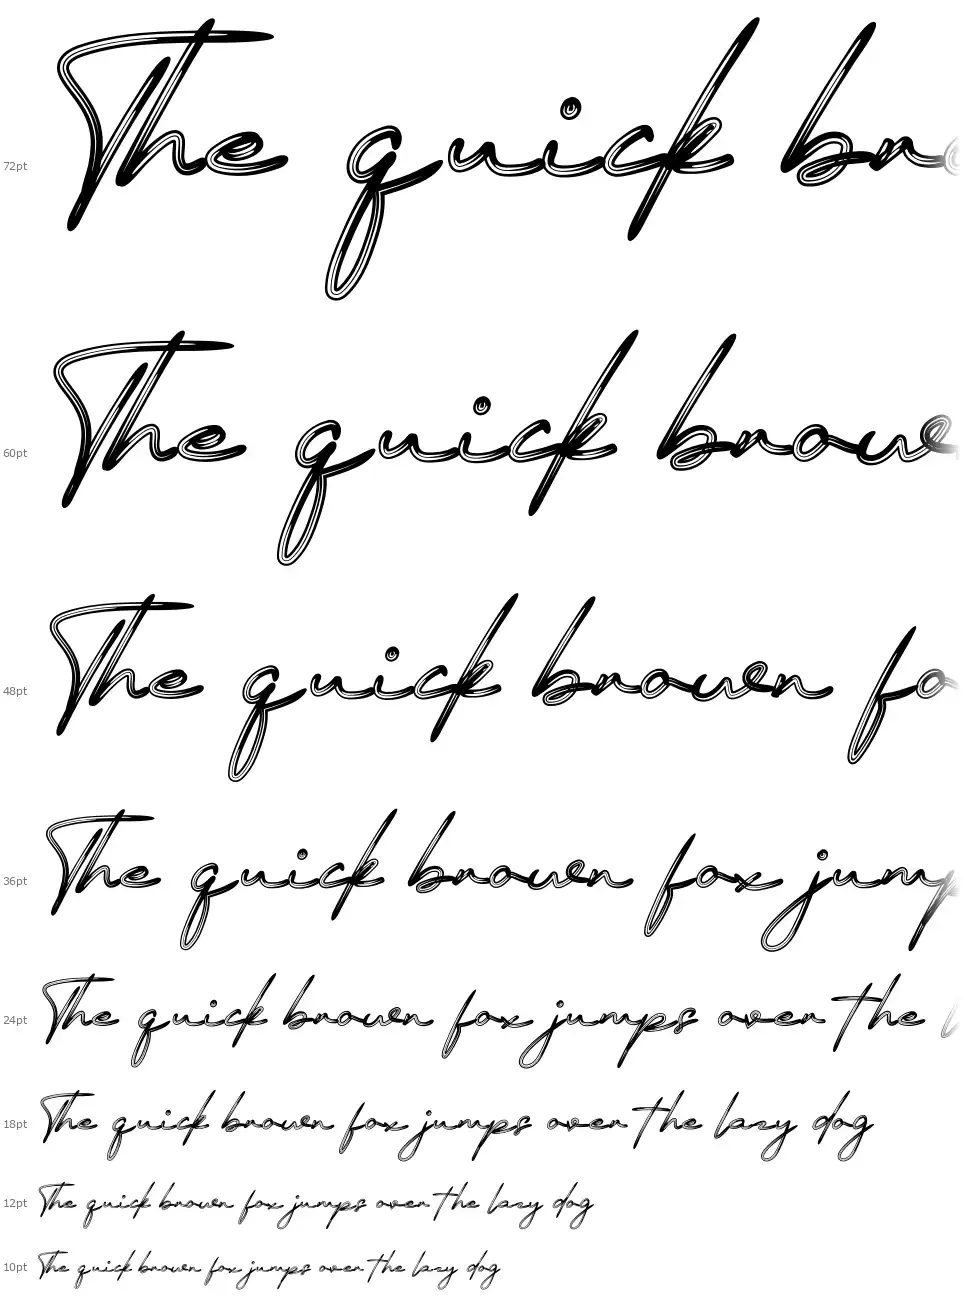 72pt The quick bro
60pt The quick brown
48pt The quick brown fo
36pt The quick brown fox jump
24pt The quick brown fox jumps over the l
18pt The quick brown fox jumps over the lazy dog
12pt The quick brown fox jumps over the lazy dog
10pt The quick brown fox jumps over the lazy dog